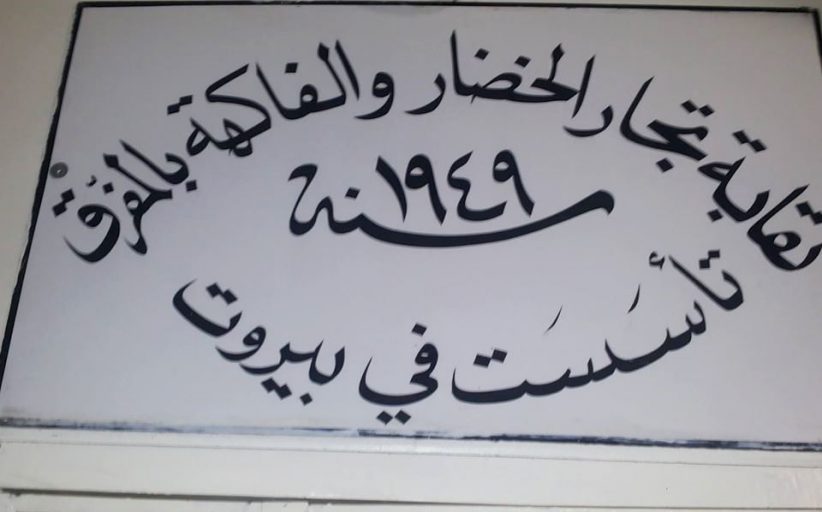 نقابة تجار الخضار والفاكهة بالمفرّق
سنة ١٩٤٩
تأسَسَت في بيروت